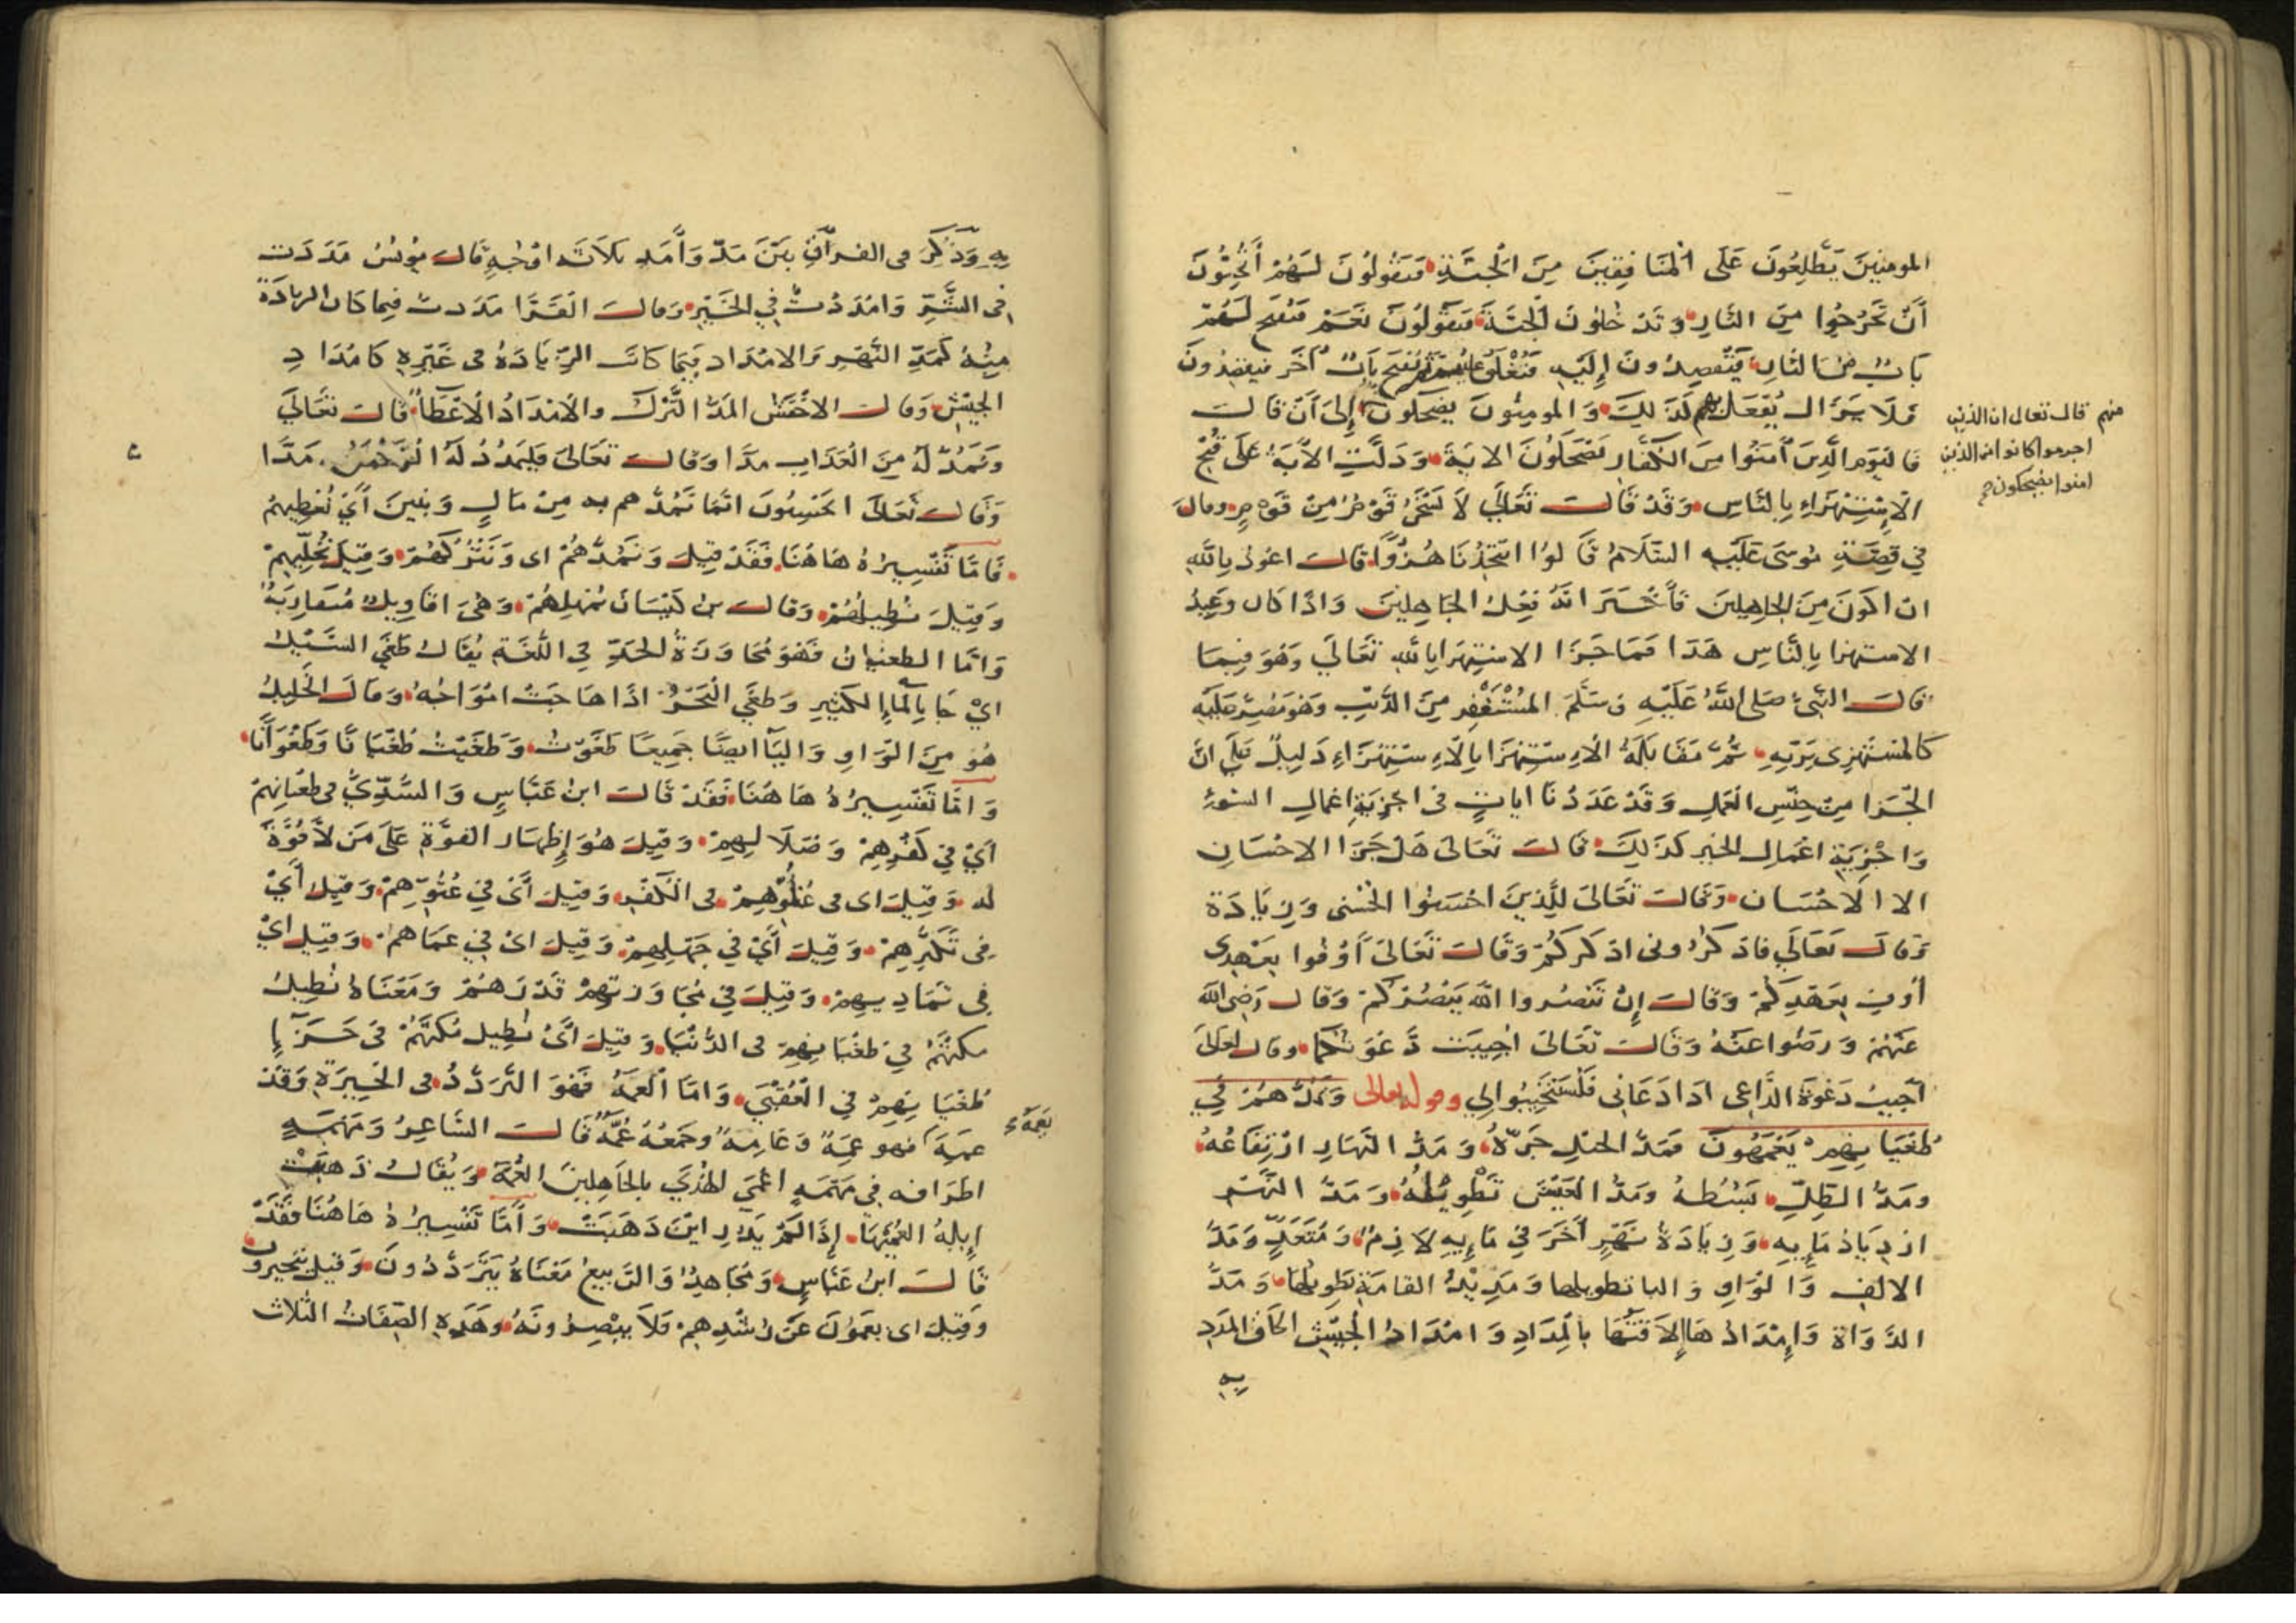 المومنين يطلعون على المنافقين من الجنة فيقولون لهم أتحبون
أن تخرجوا من النار وتدخلون الجنة فيقولون نعم فيفتح لهم
باب من النار فيقصدون إليه فيغلق عليهم ثم يفتح باب آخر فيقصدون
فلا يزال يفعل بهم كذلك والمومنون يضحكون إلى أن قال
منهم قال تعالى ان الذين
اجرموا كانوا من الذين
امنوا يضحكون
فاليوم الذين آمنوا من الكفار يضحكون الاية ودلت الآية على قبح
الاستهزاء بالناس وقد قال تعالى لا يسخر قوم من قوم وقال
في قصة موسى عليه السلام قالوا اتتخذنا هزوا قال اعوذ بالله
ان اكون من الجاهلين فأخبر انه فعل الجاهلين واذا كان وعيد
الاستهزا بالناس هذا فما جزا الاستهزا بالله تعالى وهو فيما
قال النبي صلى الله عليه وسلم المستغفر من الذنب وهو مصر عليه
كالمستهزى بربه ثم مقابلة الاستهزا بالاستهزاء دليل على ان
الجزا من جنس العمل وقد عددنا ايات في اجزية اعمال السوء
واجزية اعمال الخير كذلك قال تعالى هل جزا الاحسان
الا الاحسان وقال تعالى للذين احسنوا الحسنى وزيادة
وقال تعالى فاذكرونى اذكركم وقال تعالى أوفوا بعهدى
أوف بعهدكم وقال إن تنصروا الله ينصركم وقال رضى الله
عنهم ورضوا عنه وقال تعالى اجيبت دعوتكما وقال تعالى
اجيب دعوة الداعى اذا دعانى فليستجيبوا لي وقوله تعالى ونمدهم في
طغيانهم يعمهون فمد الحبل جره ومد النهار ارتفاعه
ومد الظل بسطه ومد العيش تطويله ومد النهر
ازدياد مايه وزيادة نهر آخر في مايه لازم ومتعد ومد
الالف والواو واليا تطويلها ومديد القامة طويلها ومد
الدواة وإمدادها إلاقتها بالمداد وامداد الجيش الحاق المدد
به
به وذكر فى القرآن بين مد وأمد ثلاثة اوجه قال يونس مددت
فى الشر وامددت في الخير وقال الفرا مددت فيما كان الزيادة
منه كمد النهر والامداد فيما كانت الزيادة فى غيره كامداد
الجيش وقال الاخفش المد الترك والامداد الاعطأ قال تعالى
ونمد له من العذاب مدا وقال تعالى فليمدد له الرحمن مدا
وقال تعالى ايحسبون انما نمدهم به من مال وبنين أي نعطيهم
فاما تفسيره هاهنا فقد قيل ونمدهم اى ونتركهم وقيل نخليهم
وقيل نطيل لهم وقال بن كيسان نمهلهم وهى اقاويل متقاربة
واما الطغيان فهو مجاوزة الحد في اللغة يقال طغى السيل
اي جا بالماء الكثير وطغى البحر اذا هاجت امواجه وقال الخليل
هو من الواو واليا ايضا جميعا طغوت وطغيت طغيانا وطغوانا
واما تفسيره هاهنا فقد قال ابن عباس والسدي فى طغيانهم
أي في كفرهم وضلالهم وقيل هو إظهار القوة على من لا قوة
له وقيل اى فى غلوهم فى الكفر وقيل أى في عتوهم وقيل أي
فى تكبرهم وقيل أي في جهلهم وقيل اى في عماهم وقيل اي
فى تماديهم وقيل في مجاوزتهم قدرهم ومعناه نطيل
مكثهم في طغيانهم فى الدنيا وقيل أى نطيل مكثهم في جزا
طغيانهم في العقبى واما العمه فهو التردد فى الحيرة وقد
عمه يعمه فهو عمه وعامه وجمعه عمه قال الشاعر ومهمه
اطرافه في مهمه اعمى الهدى بالجاهلين العمه ويقال ذهبت
إبله العميهى إذا لم يدر اين ذهبت وأما تفسيره هاهنا فقد
قال ابن عباس ومجاهد والربيع معناه يترددون وقيل يتحيرون
وقيل اى يعمون عن رشدهم فلا يبصرونه وهذه الصفات الثلاث